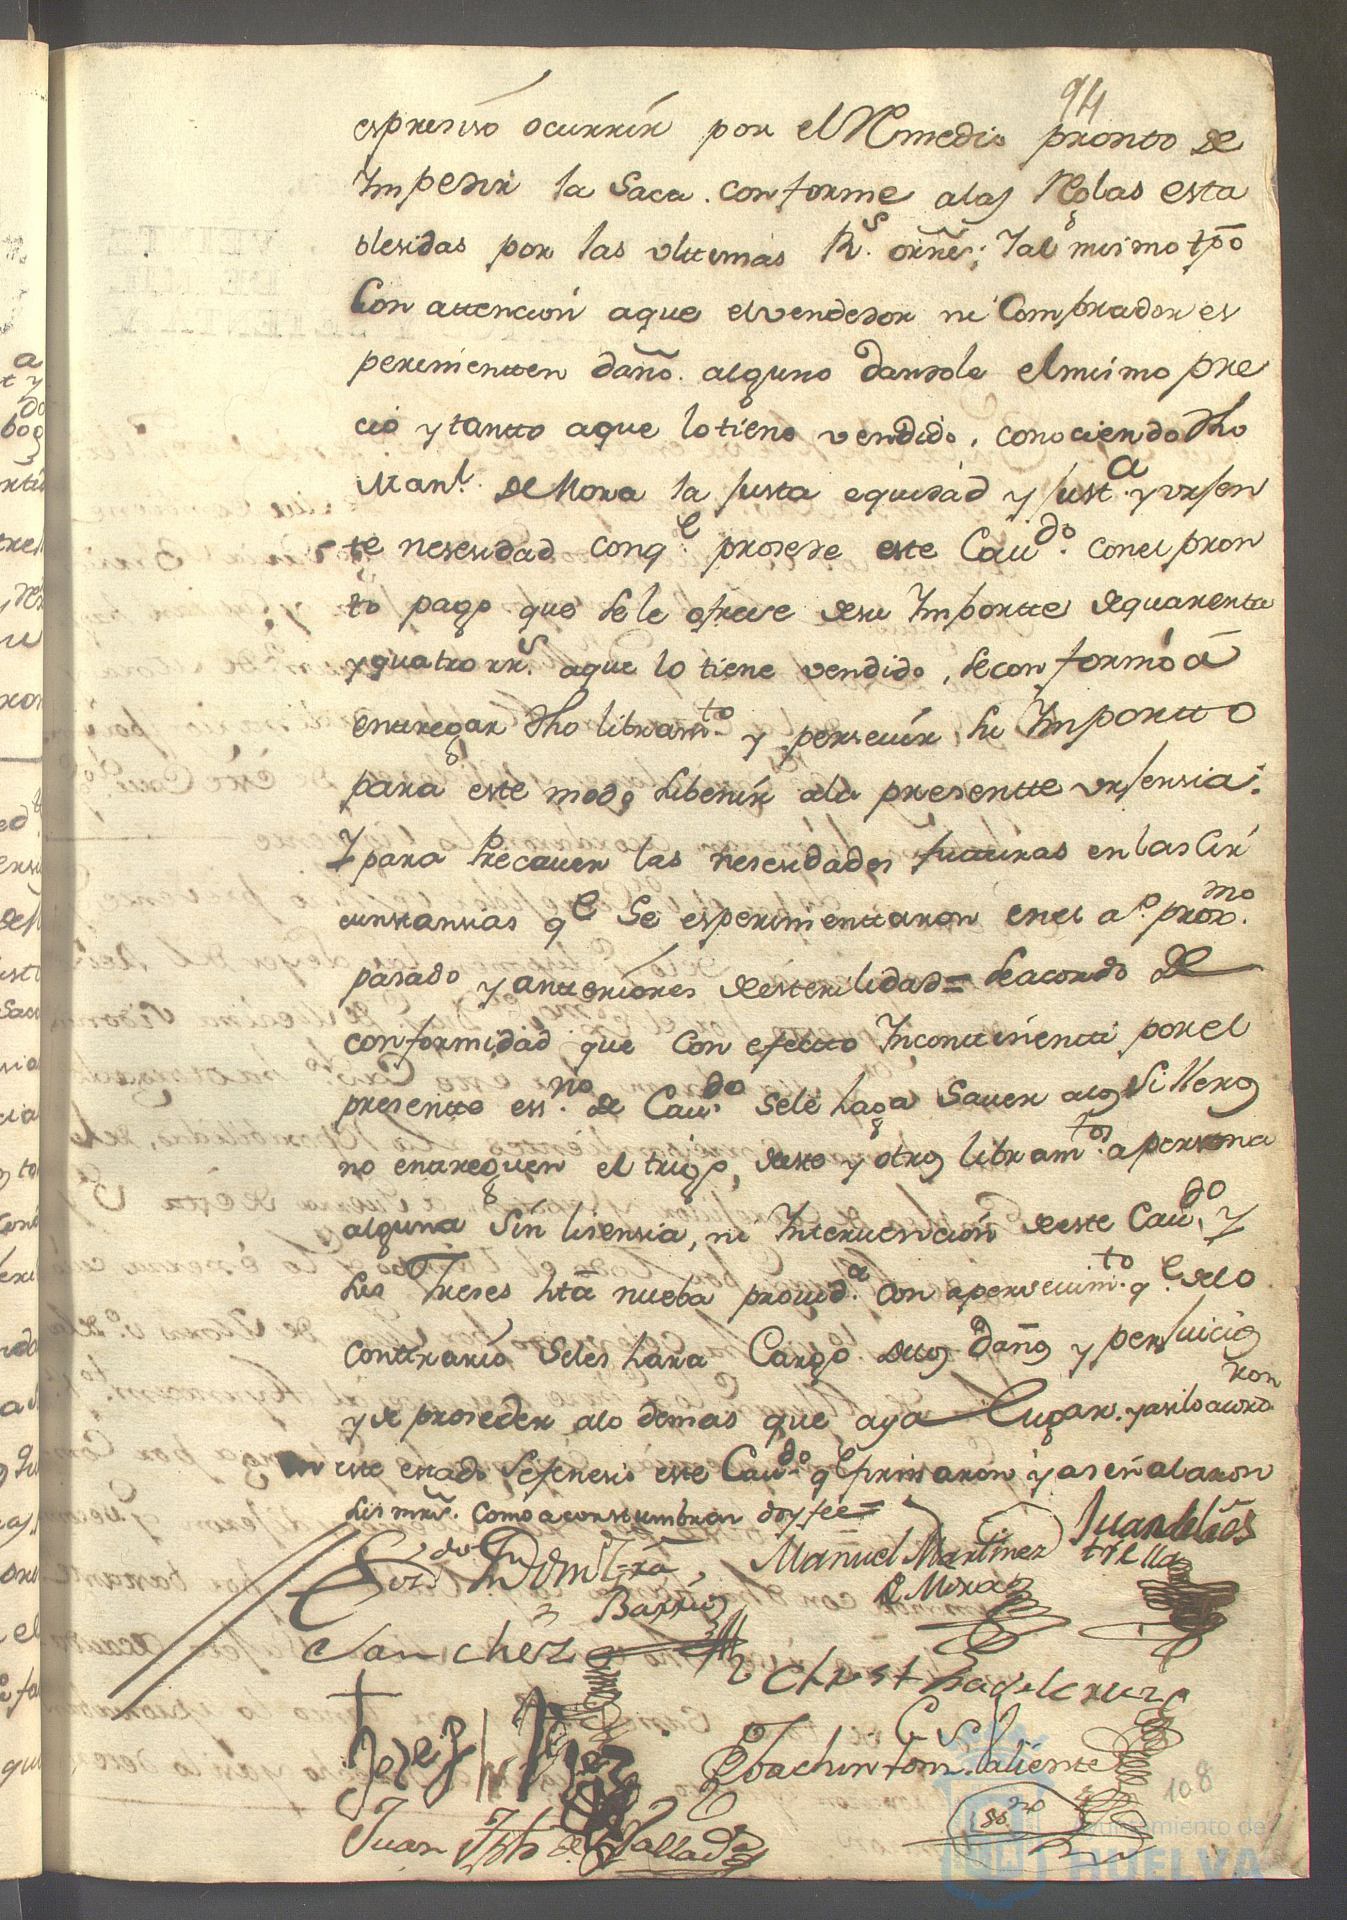 94
espresiso ocurrir por el Rmedio pronto de
Impedir la Saca. conforme alas Reglas esta
blesidas por las vltimas Rs. ornes; Y al mismo tpõ
Con attencion aque elvendedor ni Comprador es
perimentten daño alguno dansole elmismo pre
cio y tantto aque lotiene vendido, conociendo dho
Manl. de Mora la justa equidad y justa. y vrjen
te nesesidad conqe. prosede este Caudo. conel pron
to pago que se le ofrece desu Importte dequarenta
y quatro rrs. aque lo tiene vendido, seconformó â
entregar dho libramto. y perseuir su Importto
para este modo subenir ala presentte vrjensia.
Y para Precauer las nesesidades futturas en las Cir
cunstansias qe Se esperimenttaron enel ao. proxmo.
pasado y antteriores de esterilidad = Seacordo de
conformidad que con efectto Inconttinentti porel
presentte essno. de Caudo. sele haga Sauer alos Silleros
no entreguen el trigo, deste y otros libramtos. a persona
alguna Sin lisensia, ni Interuencion deeste Caudo. y
Sus Mrcedes htã nueba prouida. con aperseuimto. qe. delo
conttrario Seles hara Cargo delos daños y perjuicios
y se proseder alo demas que aya Lugar. y asilo acorda
ron
en este estado sefenesio este Caudo. qe firmaron y aseñalaron
sus mrds. como aconstumbran doy fee=
Manuel Martinez
de Mora
Juan delãs
trella
Barrios
Sanchez
Christ
Joachin
Valiente
Juan
de Vallad
108
Ayuntamiento de
HUELVA